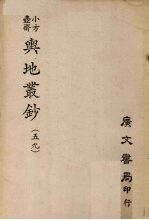 小方壺齋
輿地叢鈔
(五九)
廣文書局印行